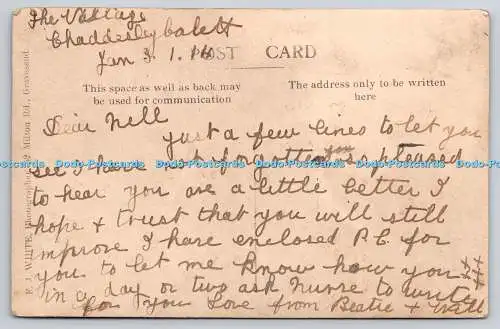 The Village
Chaddesley Corbett
Jan 3. 1. 16
POST CARD
This space as well as back may
be used for communication
The address only to be written
here
Dear Nell
just a few lines to let you
see I have not forgotten you pleased
to hear you are a little better I
hope & trust that you will still
improve I have enclosed P.C. for
you to let me know how you
in a day or two ask Nurse to write
for you Love from Beatie & Will
F. J. WHITE, Photographer, Milton Rd., Gravesend.
Dodo-Postcards Dodo-Postcards Dodo-Postcards Dodo-Postcards Dodo-Postcards Dodo-Postcards